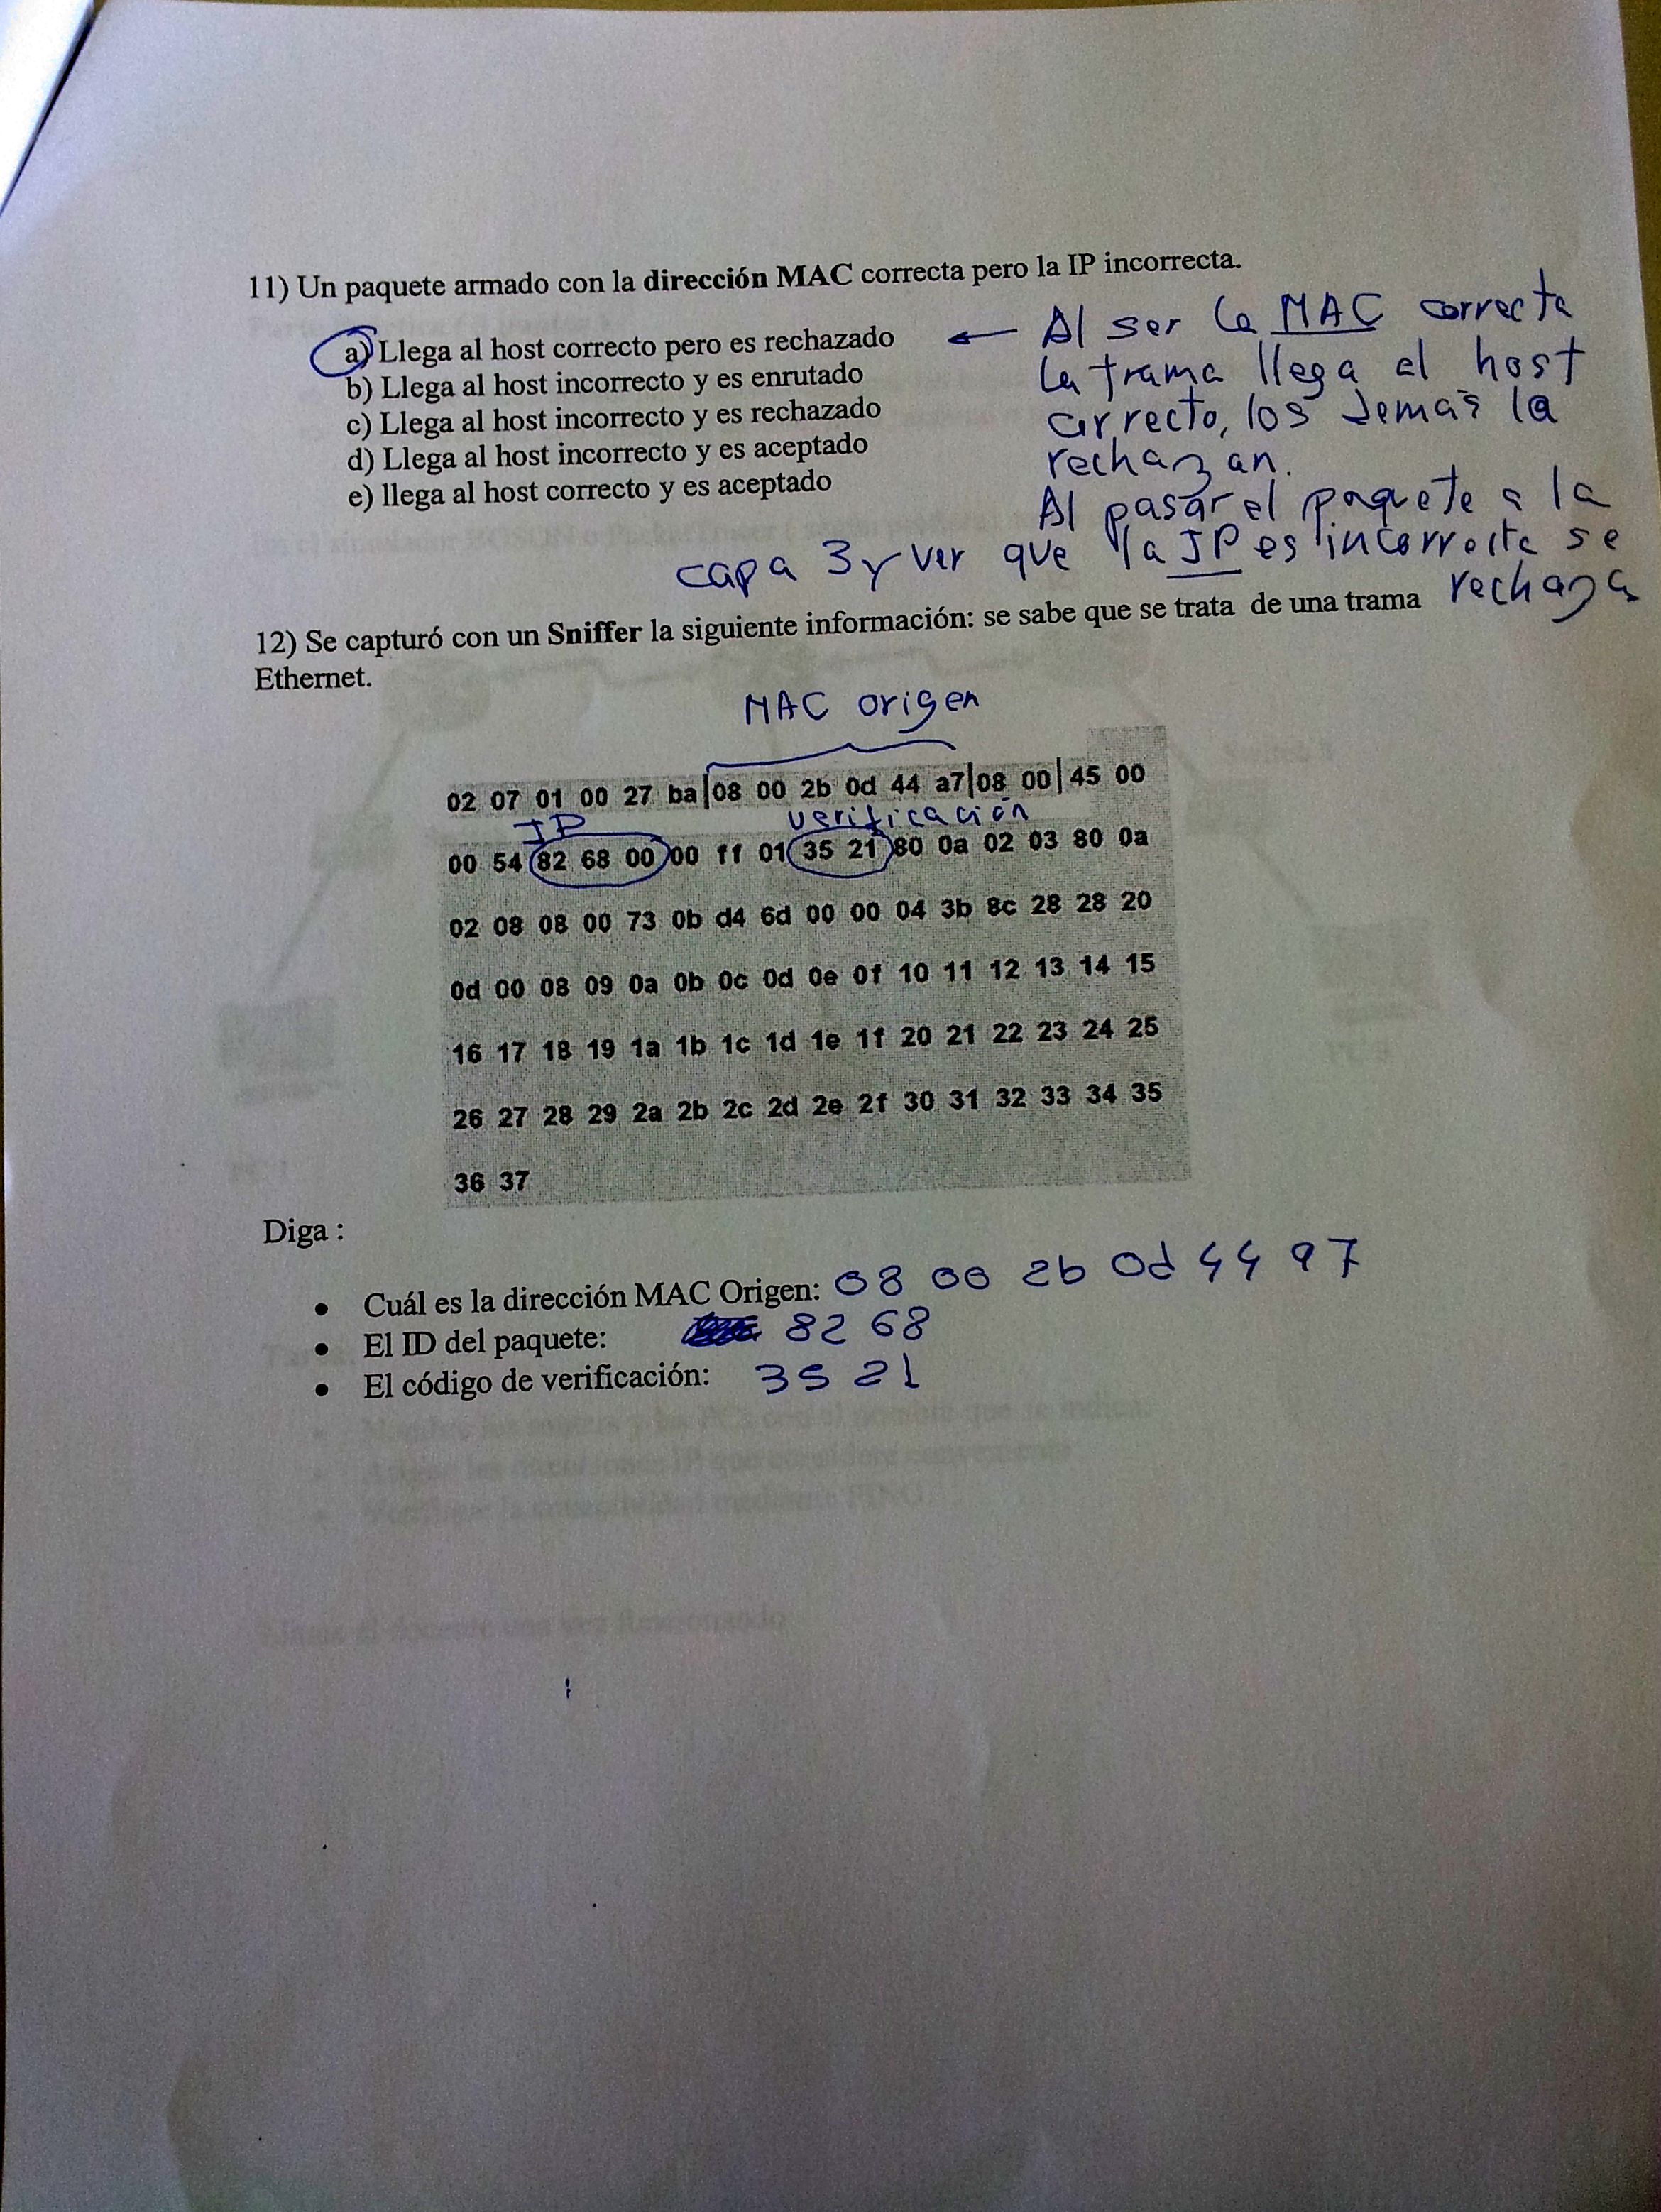 11) Un paquete armado con la dirección MAC correcta pero la IP incorrecta.
a) Llega al host correcto pero es rechazado
b) Llega al host incorrecto y es enrutado
c) Llega al host incorrecto y es rechazado
d) Llega al host incorrecto y es aceptado
e) llega al host correcto y es aceptado
← Al ser la MAC correcta
la trama llega al host
correcto, los demas la
rechazan.
Al pasar el paquete a la
capa 3 y ver que la IP es incorrecta se
rechaza
12) Se capturó con un Sniffer la siguiente información: se sabe que se trata de una trama
Ethernet.
MAC origen
02 07 01 00 27 ba|08 00 2b 0d 44 a7|08 00|45 00
ID verificación
00 54 82 68 00 00 ff 01 35 21 80 0a 02 03 80 0a
02 08 08 00 73 0b d4 6d 00 00 04 3b 8c 28 28 20
0d 00 08 09 0a 0b 0c 0d 0e 0f 10 11 12 13 14 15
16 17 18 19 1a 1b 1c 1d 1e 1f 20 21 22 23 24 25
26 27 28 29 2a 2b 2c 2d 2e 2f 30 31 32 33 34 35
36 37
Diga :
• Cuál es la dirección MAC Origen: 08 00 2b 0d 44 a7
• El ID del paquete: 82 68
• El código de verificación: 35 21